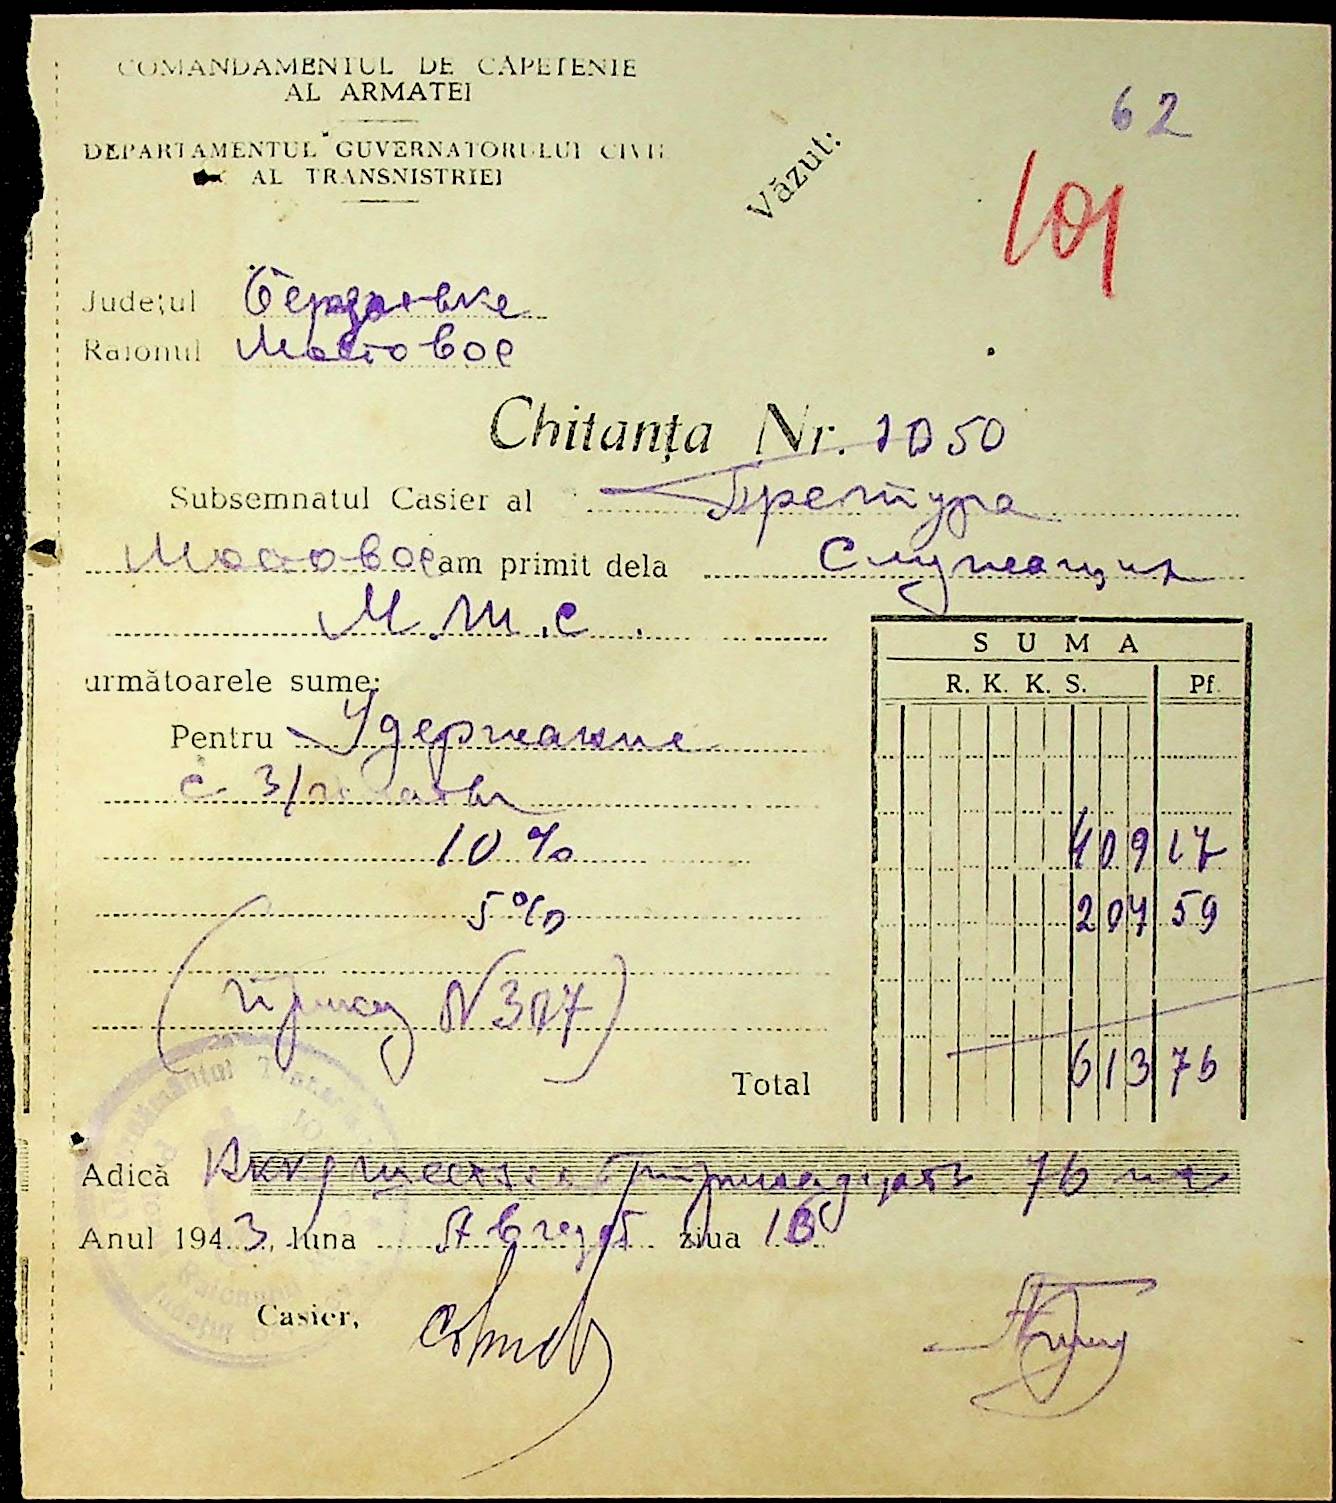 COMANDAMENTUL DE CAPETENIE
AL ARMATEI
DEPARTAMENTUL GUVERNATORULUI CIVIL
AL TRANSNISTRIEI
Văzut:
62
101
Județul Бердовке
Raionul Мостовое
Chitanța Nr. 1050
Subsemnatul Casier al Претура
Мостовое am primit dela Служащих
М.Т.С.
următoarele sume:
Pentru Удержание
с з/платы
SUMA
R. K. K. S. Pf.
10% 409 17
5% 204 59
(приказ N 307)
Total 613 76
Adică шестьсот тринадцать 76
Anul 1943, luna Август ziua 16
Casier,